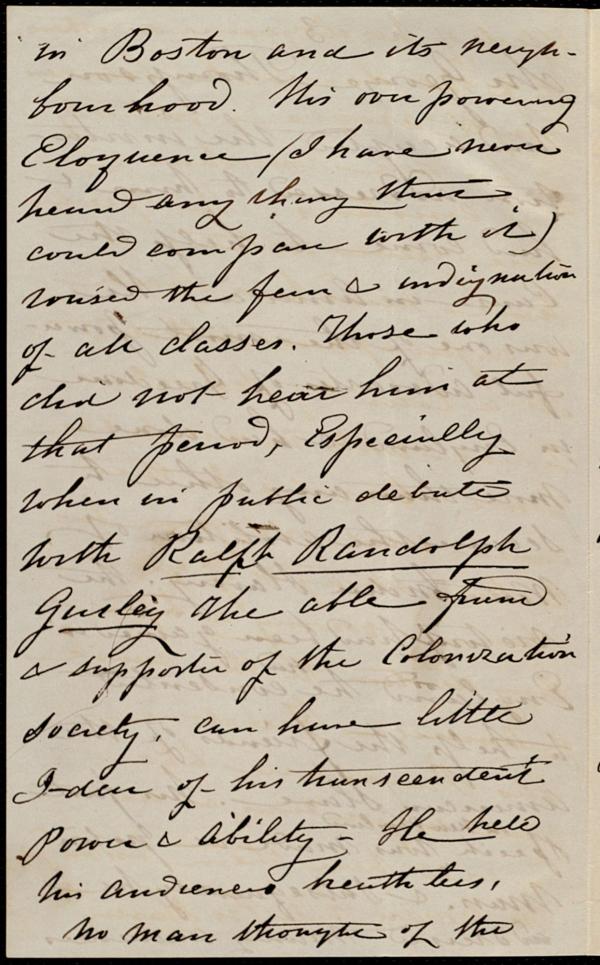 in Boston and its neigh-
bourhood. His overpowering
Eloquence (I have never
heard any thing that
could compare with it)
roused the fear & indignation
of all classes. Those who
did not hear him at
that period, Especially
when in public debate
with Ralph Randolph
Gurley the able friend
& supporter of the Colonization
Society, can have little
Idea of his transcendent
Power & Ability - He held
his audiences breathless,
no man thought of the